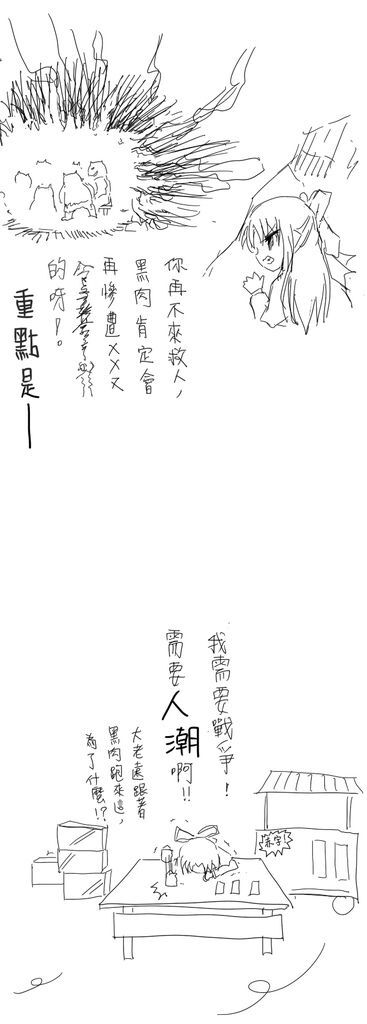 你再不來救人，
黑肉肯定會
再慘遭XXX
的呀！。
重點是—
我需要戰爭！
需要人潮啊!!
大老遠跟著
黑肉跑來這，
為了什麼!?
赤字!